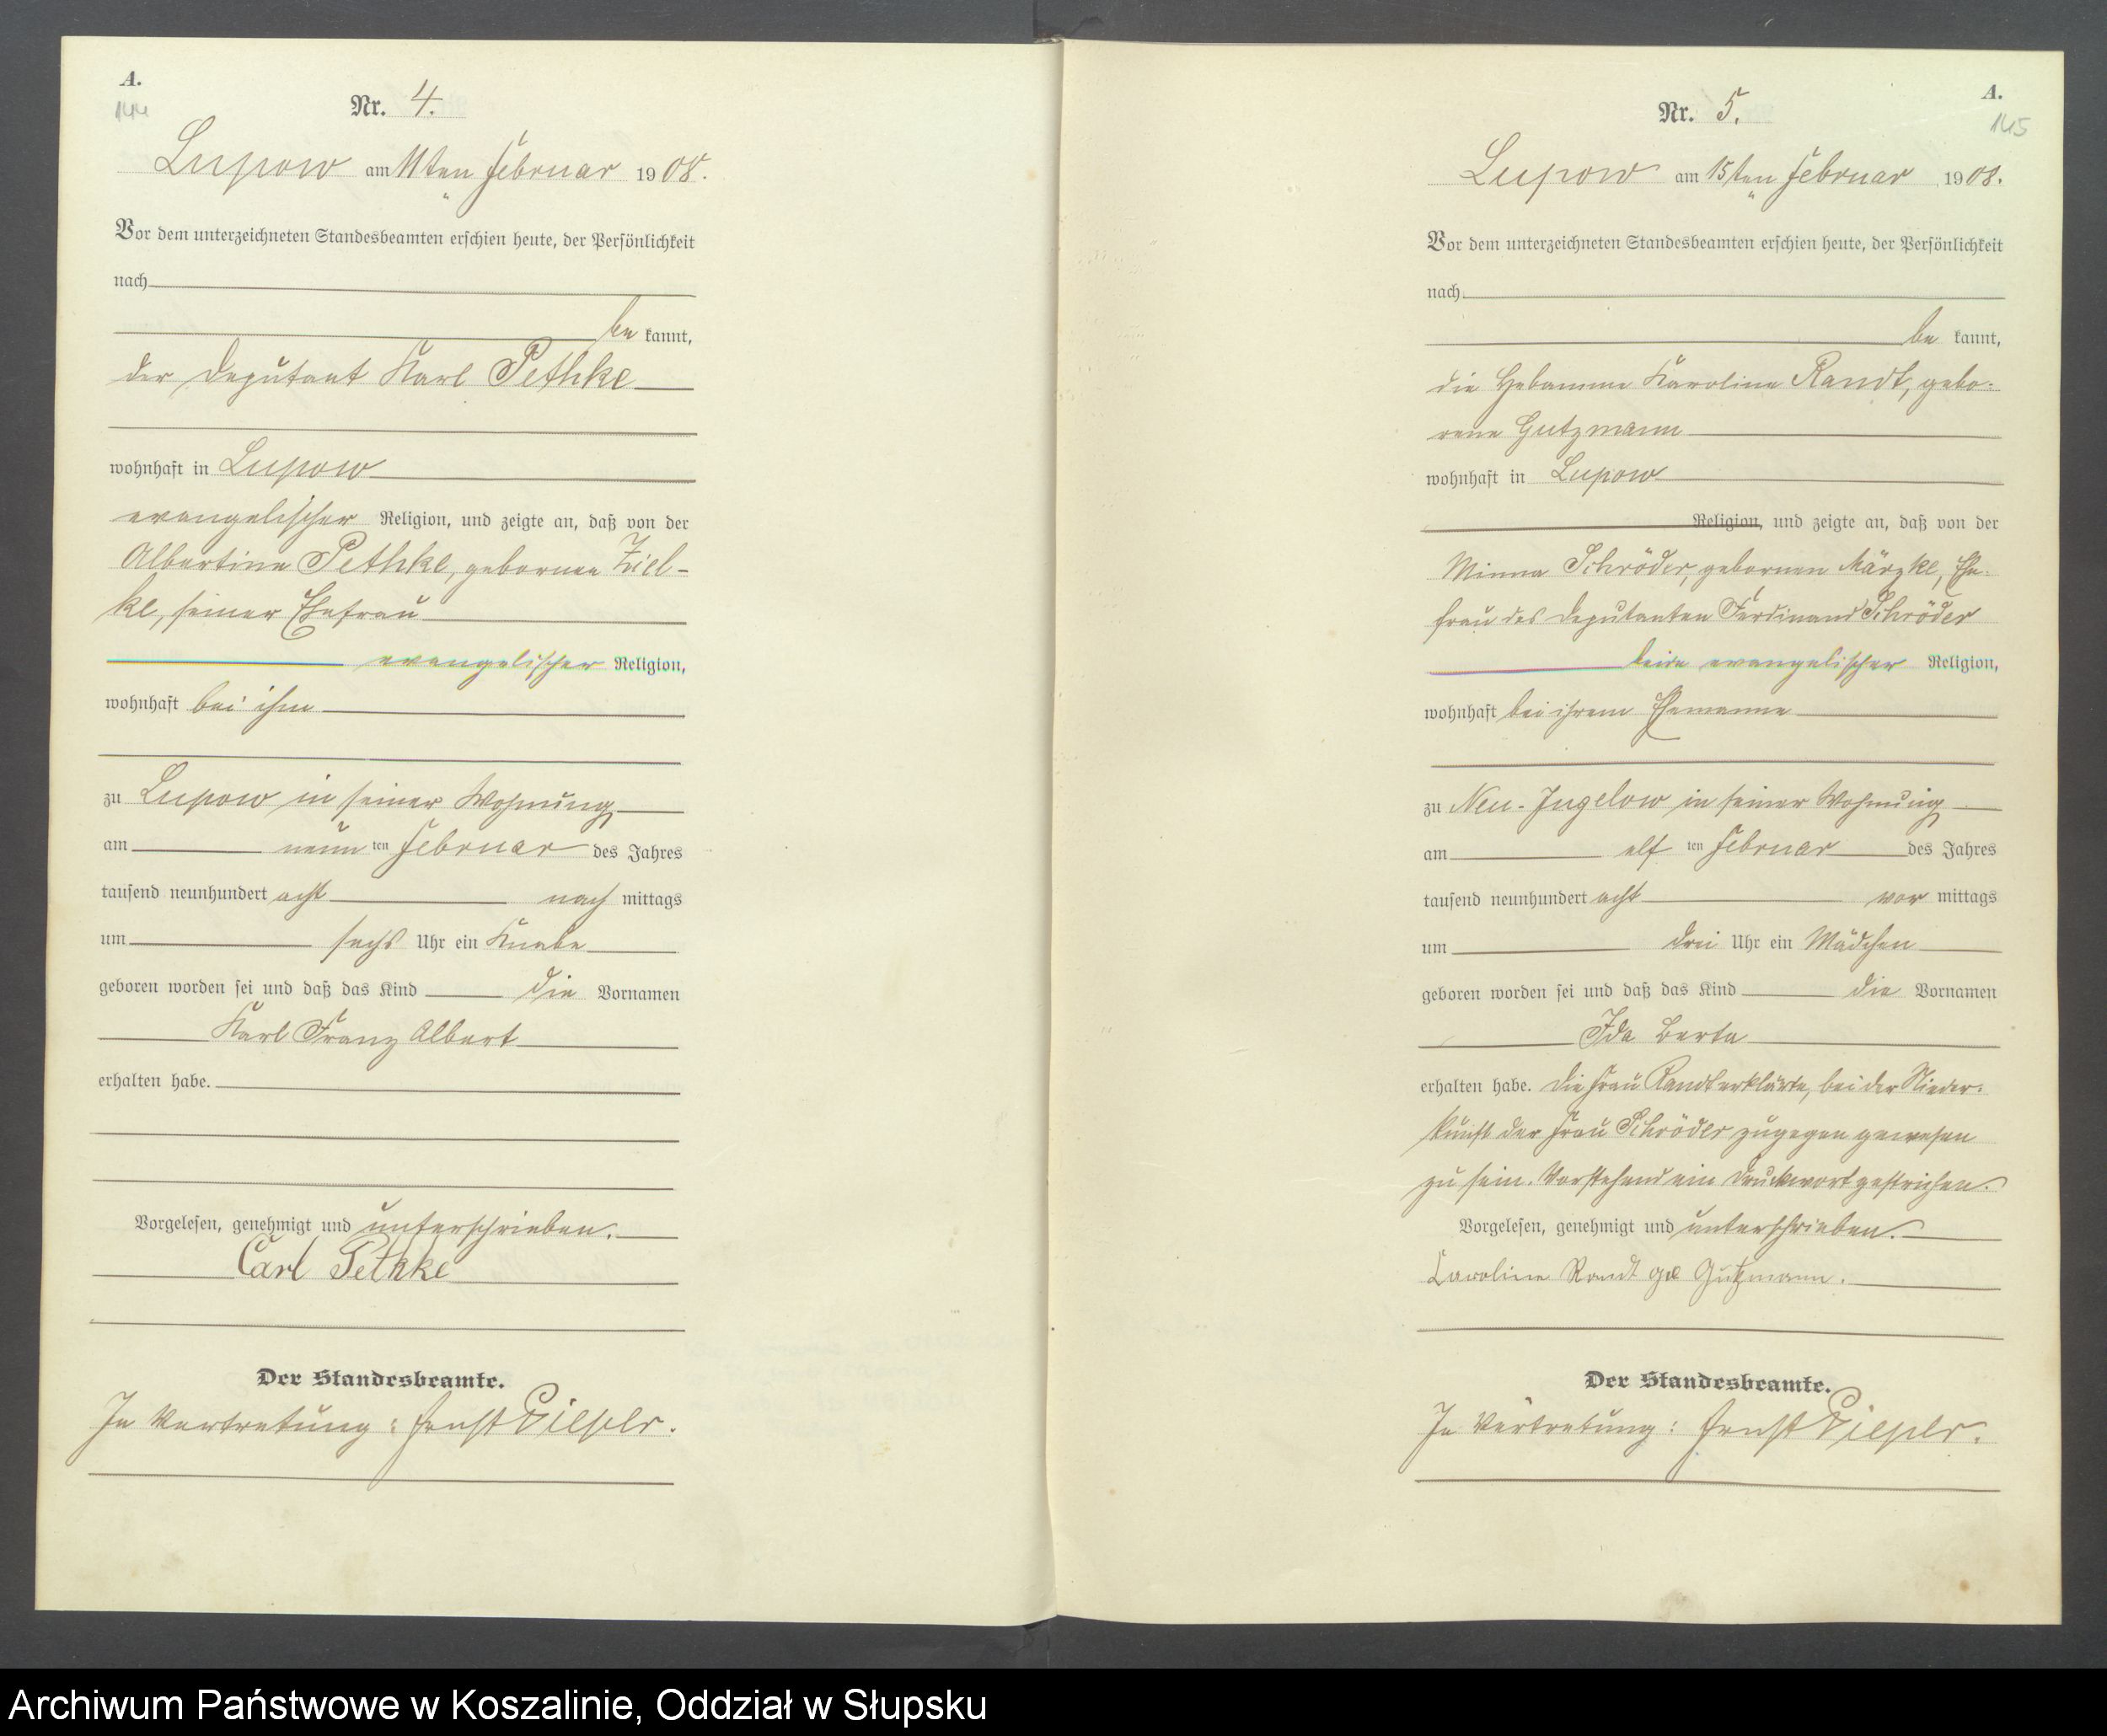 A.
144
Nr. 4.
Lupow am 11ten Februar 1908.
Vor dem unterzeichneten Standesbeamten erschien heute, der Persönlichkeit
nach
be kannt,
der Deputant Karl Pethke
wohnhaft in Lupow
evangelischer Religion, und zeigte an, daß von der
Albertine Pethke, gebornen Ziel-
ke, seiner Ehefrau
evangelischer Religion,
wohnhaft bei ihm
zu Lupow in seiner Wohnung
am neun ten Februar des Jahres
tausend neunhundert acht nach mittags
um sechs Uhr ein Knabe
geboren worden sei und daß das Kind die Vornamen
Karl Franz Albert
erhalten habe.
Vorgelesen, genehmigt und unterschrieben.
Carl Pethke
Der Standesbeamte.
In Vertretung: Ernst Piepls.
A.
145
Nr. 5.
Lupow am 15ten Februar 1908.
Vor dem unterzeichneten Standesbeamten erschien heute, der Persönlichkeit
nach
be kannt,
die Hebamme Karoline Randt, gebo-
rene Gutzmann
wohnhaft in Lupow
Religion, und zeigte an, daß von der
Minna Schröder, gebornen Märzke, Ehe-
frau des Deputanten Ferdinand Schröder
beide evangelischer Religion,
wohnhaft bei ihrem Ehemanne
zu Neu-Jugelow in seiner Wohnung
am elf ten Februar des Jahres
tausend neunhundert acht vor mittags
um drei Uhr ein Mädchen
geboren worden sei und daß das Kind die Vornamen
Ida Berta
erhalten habe. Die Frau Randt erklärte, bei der Nieder-
kunft der Frau Schröder zugegen gewesen
zu sein. Vorstehend ein Druckwort gestrichen.
Vorgelesen, genehmigt und unterschrieben.
Caroline Randt ge Gutzmann.
Der Standesbeamte.
In Vertretung: Ernst Piepls.
Archiwum Państwowe w Koszalinie, Oddział w Słupsku